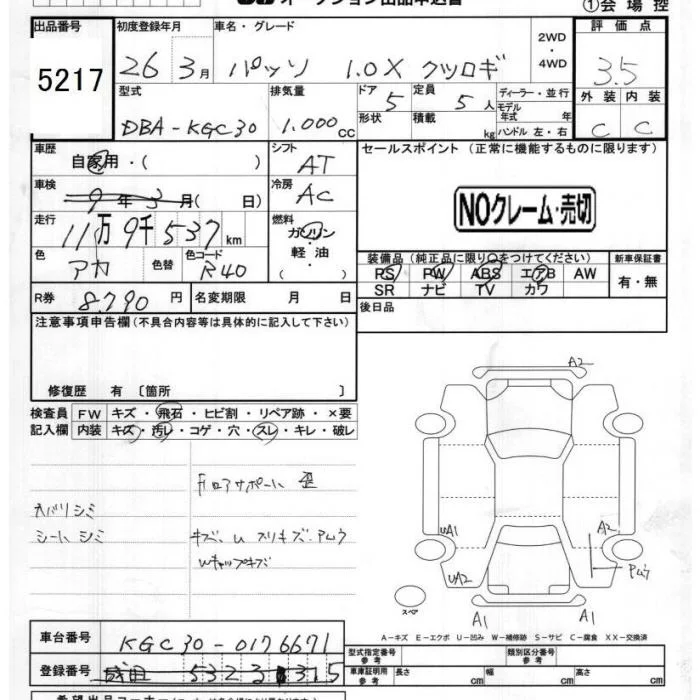 オークション出品申込書
①会場控
出品番号 5217
初度登録年月 26 3月
車名・グレード パッソ 1.0X クツロギ
2WD・4WD
評価点 3.5
型式 DBA-KGC30
排気量 1.000cc
ドア 5
定員 5人
形状
積載 kg
ディーラー・並行
モデル年式 年
ハンドル 左・右
外装 内装
C C
車歴 自家用・( )
シフト AT
車検 9年3月( 日)
冷房 AC
走行 11万9千537km
燃料 ガソリン・軽油・( )
色 アカ 色替
色コード R40
R券 8.790円
名変期限 月 日
セールスポイント(正常に機能するものに限ります)
NOクレーム・売切
装備品(純正品に限り○をつけてください)
新車保証書
PS PW ABS エアB AW
SR ナビ TV カワ
有・無
後日品
注意事項申告欄(不具合内容等は具体的に記入して下さい)
修復歴 有〔箇所 〕
検査員記入欄
FW キズ・飛石・ヒビ割・リペア跡・×要
内装 キズ・汚レ・コゲ・穴・スレ・キレ・破レ
Fロアサポート 歪
天バリシミ
シートシミ
キズ、U スリキズ・Pムラ
Wキャップキズ
A2
UA1
A2
Pムラ
UA2
A1
A1
スペア
A-キズ E-エクボ U-凹み W-補修跡 S-サビ C-腐食 XX-交換済
車台番号 KGC30-0176671
型式指定番号 参考
類別区分番号 参考
登録番号
車庫証明用 参考 長さ cm 幅 cm 高さ cm